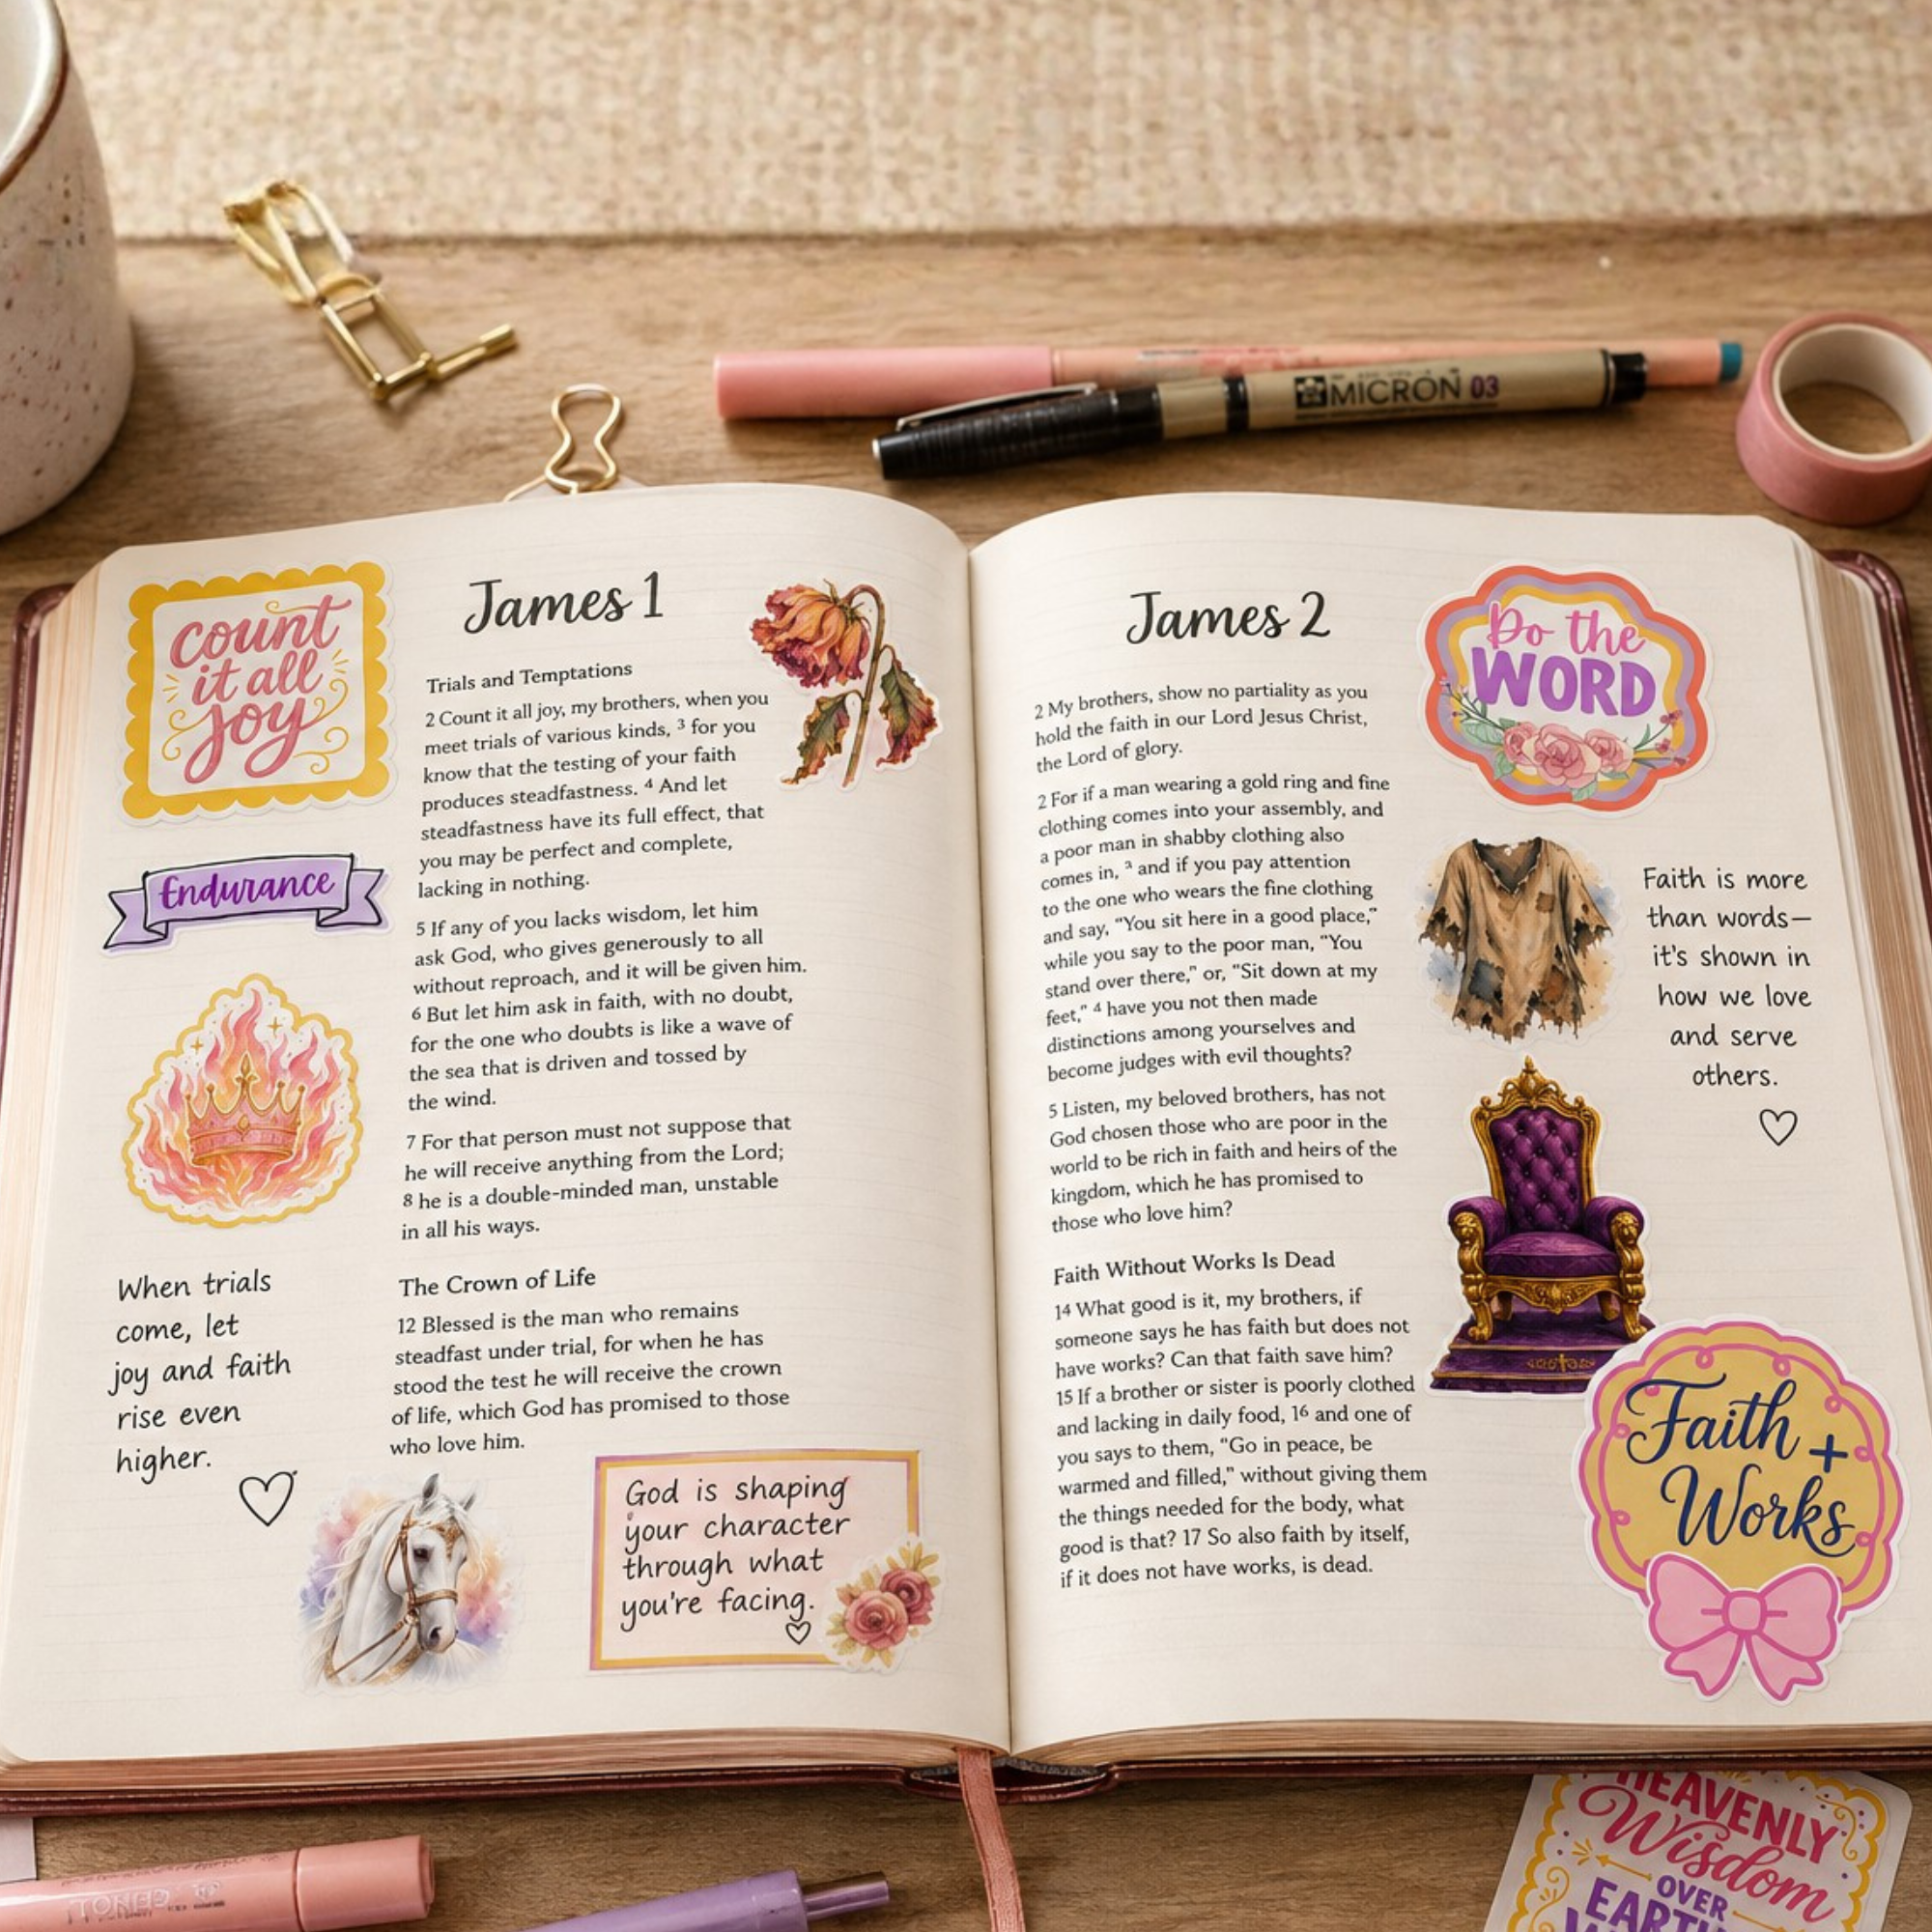 MICRON 03
count
it all
joy
James 1
Trials and Temptations
2 Count it all joy, my brothers, when you
meet trials of various kinds, 3 for you
know that the testing of your faith
produces steadfastness. 4 And let
steadfastness have its full effect, that
you may be perfect and complete,
lacking in nothing.
5 If any of you lacks wisdom, let him
ask God, who gives generously to all
without reproach, and it will be given him.
6 But let him ask in faith, with no doubt,
for the one who doubts is like a wave of
the sea that is driven and tossed by
the wind.
7 For that person must not suppose that
he will receive anything from the Lord;
8 he is a double-minded man, unstable
in all his ways.
The Crown of Life
12 Blessed is the man who remains
steadfast under trial, for when he has
stood the test he will receive the crown
of life, which God has promised to those
who love him.
Endurance
When trials
come, let
joy and faith
rise even
higher.
God is shaping
your character
through what
you're facing.
James 2
2 My brothers, show no partiality as you
hold the faith in our Lord Jesus Christ,
the Lord of glory.
2 For if a man wearing a gold ring and fine
clothing comes into your assembly, and
a poor man in shabby clothing also
comes in, 3 and if you pay attention
to the one who wears the fine clothing
and say, "You sit here in a good place,"
while you say to the poor man, "You
stand over there," or, "Sit down at my
feet," 4 have you not then made
distinctions among yourselves and
become judges with evil thoughts?
5 Listen, my beloved brothers, has not
God chosen those who are poor in the
world to be rich in faith and heirs of the
kingdom, which he has promised to
those who love him?
Faith Without Works Is Dead
14 What good is it, my brothers, if
someone says he has faith but does not
have works? Can that faith save him?
15 If a brother or sister is poorly clothed
and lacking in daily food, 16 and one of
you says to them, "Go in peace, be
warmed and filled," without giving them
the things needed for the body, what
good is that? 17 So also faith by itself,
if it does not have works, is dead.
Do the
WORD
Faith is more
than words—
it's shown in
how we love
and serve
others.
Faith +
Works
HEAVENLY
Wisdom
OVER